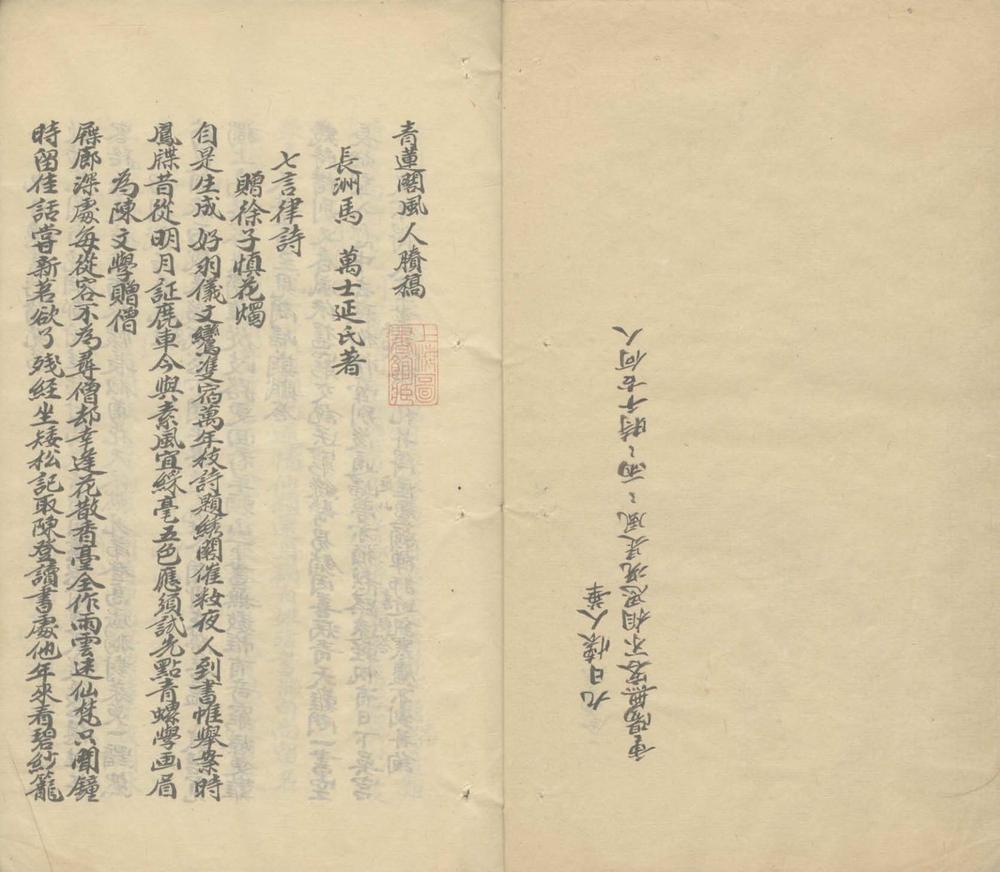 九日懷人華
重陽無客不相思况是風〻雨〻時千古何人
青蓮閣風人賸稿
長洲馬　萬士延氏著
七言律詩
贈徐子慎花燭
自是生成好羽儀文鸞雙宿萬年枝詩題綉閣催粧夜人到書帷舉案時
鳳牒昔從明月証鹿車今與素風宜綵毫五色應須試先點青螺學画眉
為陳文學贈僧
屧廊深處每從容不為尋僧却幸逢花散香臺全作雨雲迷仙梵只聞鐘
時留佳話嘗新茗欲了殘經坐矮松記取陳登讀書處他年來看碧紗籠
上海圖書館藏